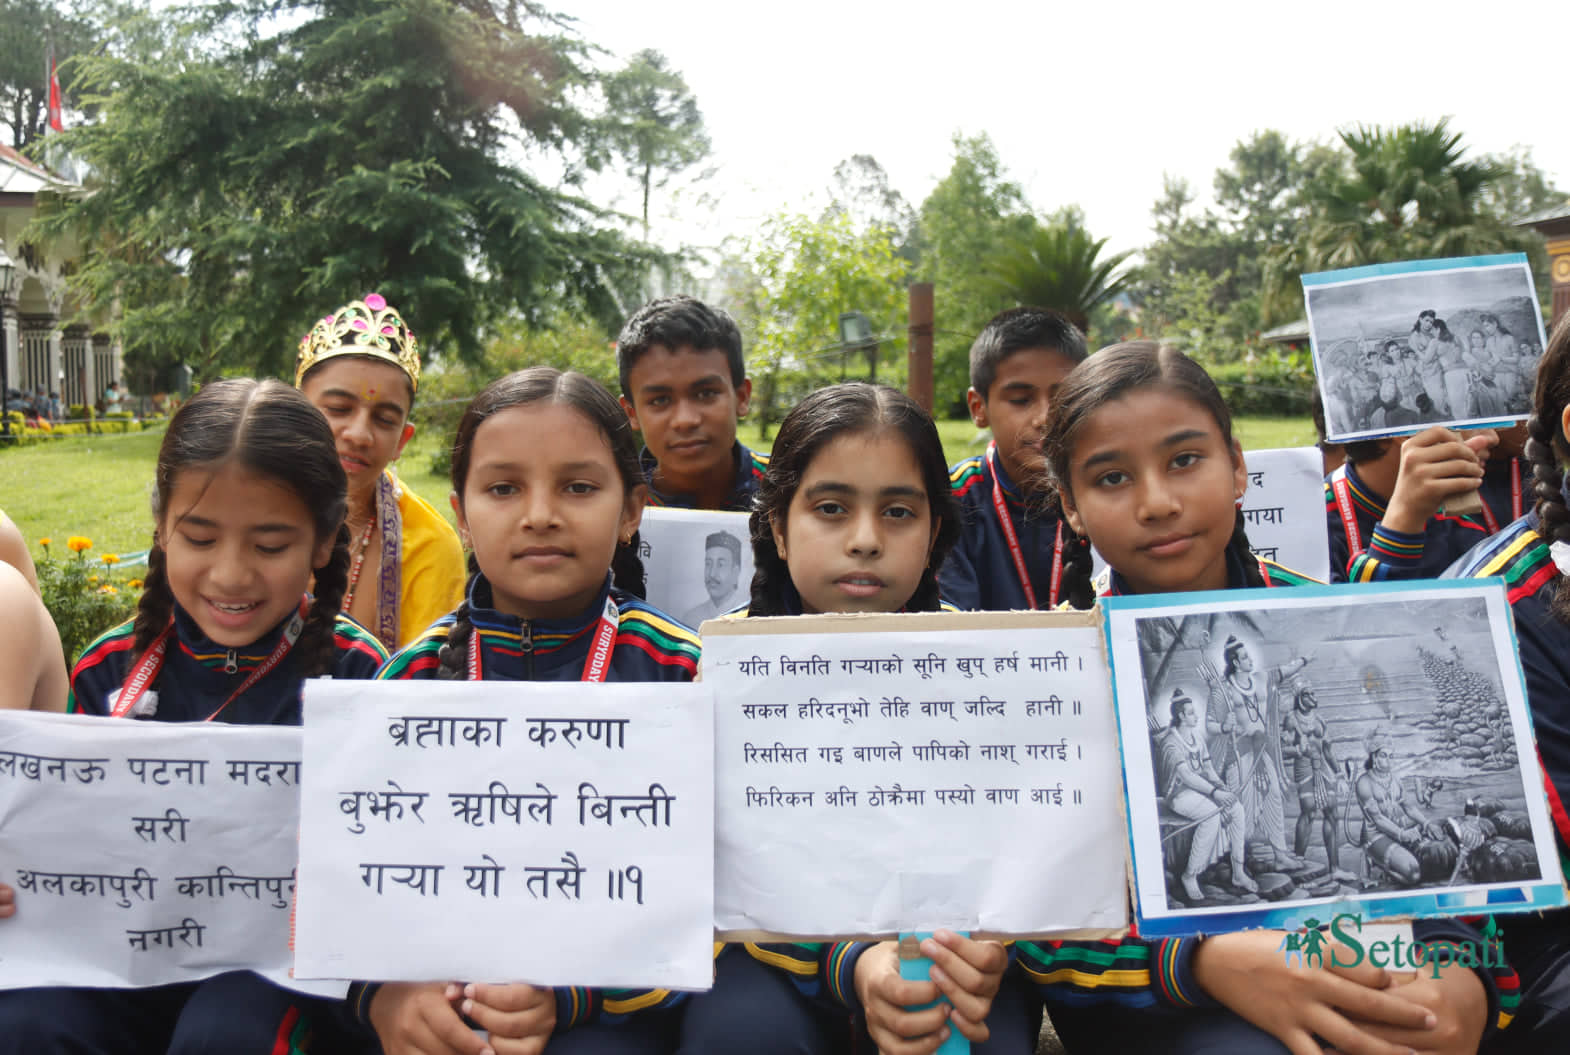 लखनऊ पटना मदरा
सरी
अलकापुरी कान्तिपु
नगरी
ब्रह्माका करुणा
बुझेर ऋषिले बिन्ती
गर्‍या यो तसै ॥१
यति विनति गर्‍याको सूनि खुप् हर्ष मानी ।
सकल हरिदनूभो तेहि वाण् जल्दि हानी ॥
रिससित गइ बाणले पापिको नाश् गराई ।
फिरिकन अनि ठोक्रैमा पस्यो वाण आई ॥
वि
द
गया
SURYODAYA SECONDARY
Setopati